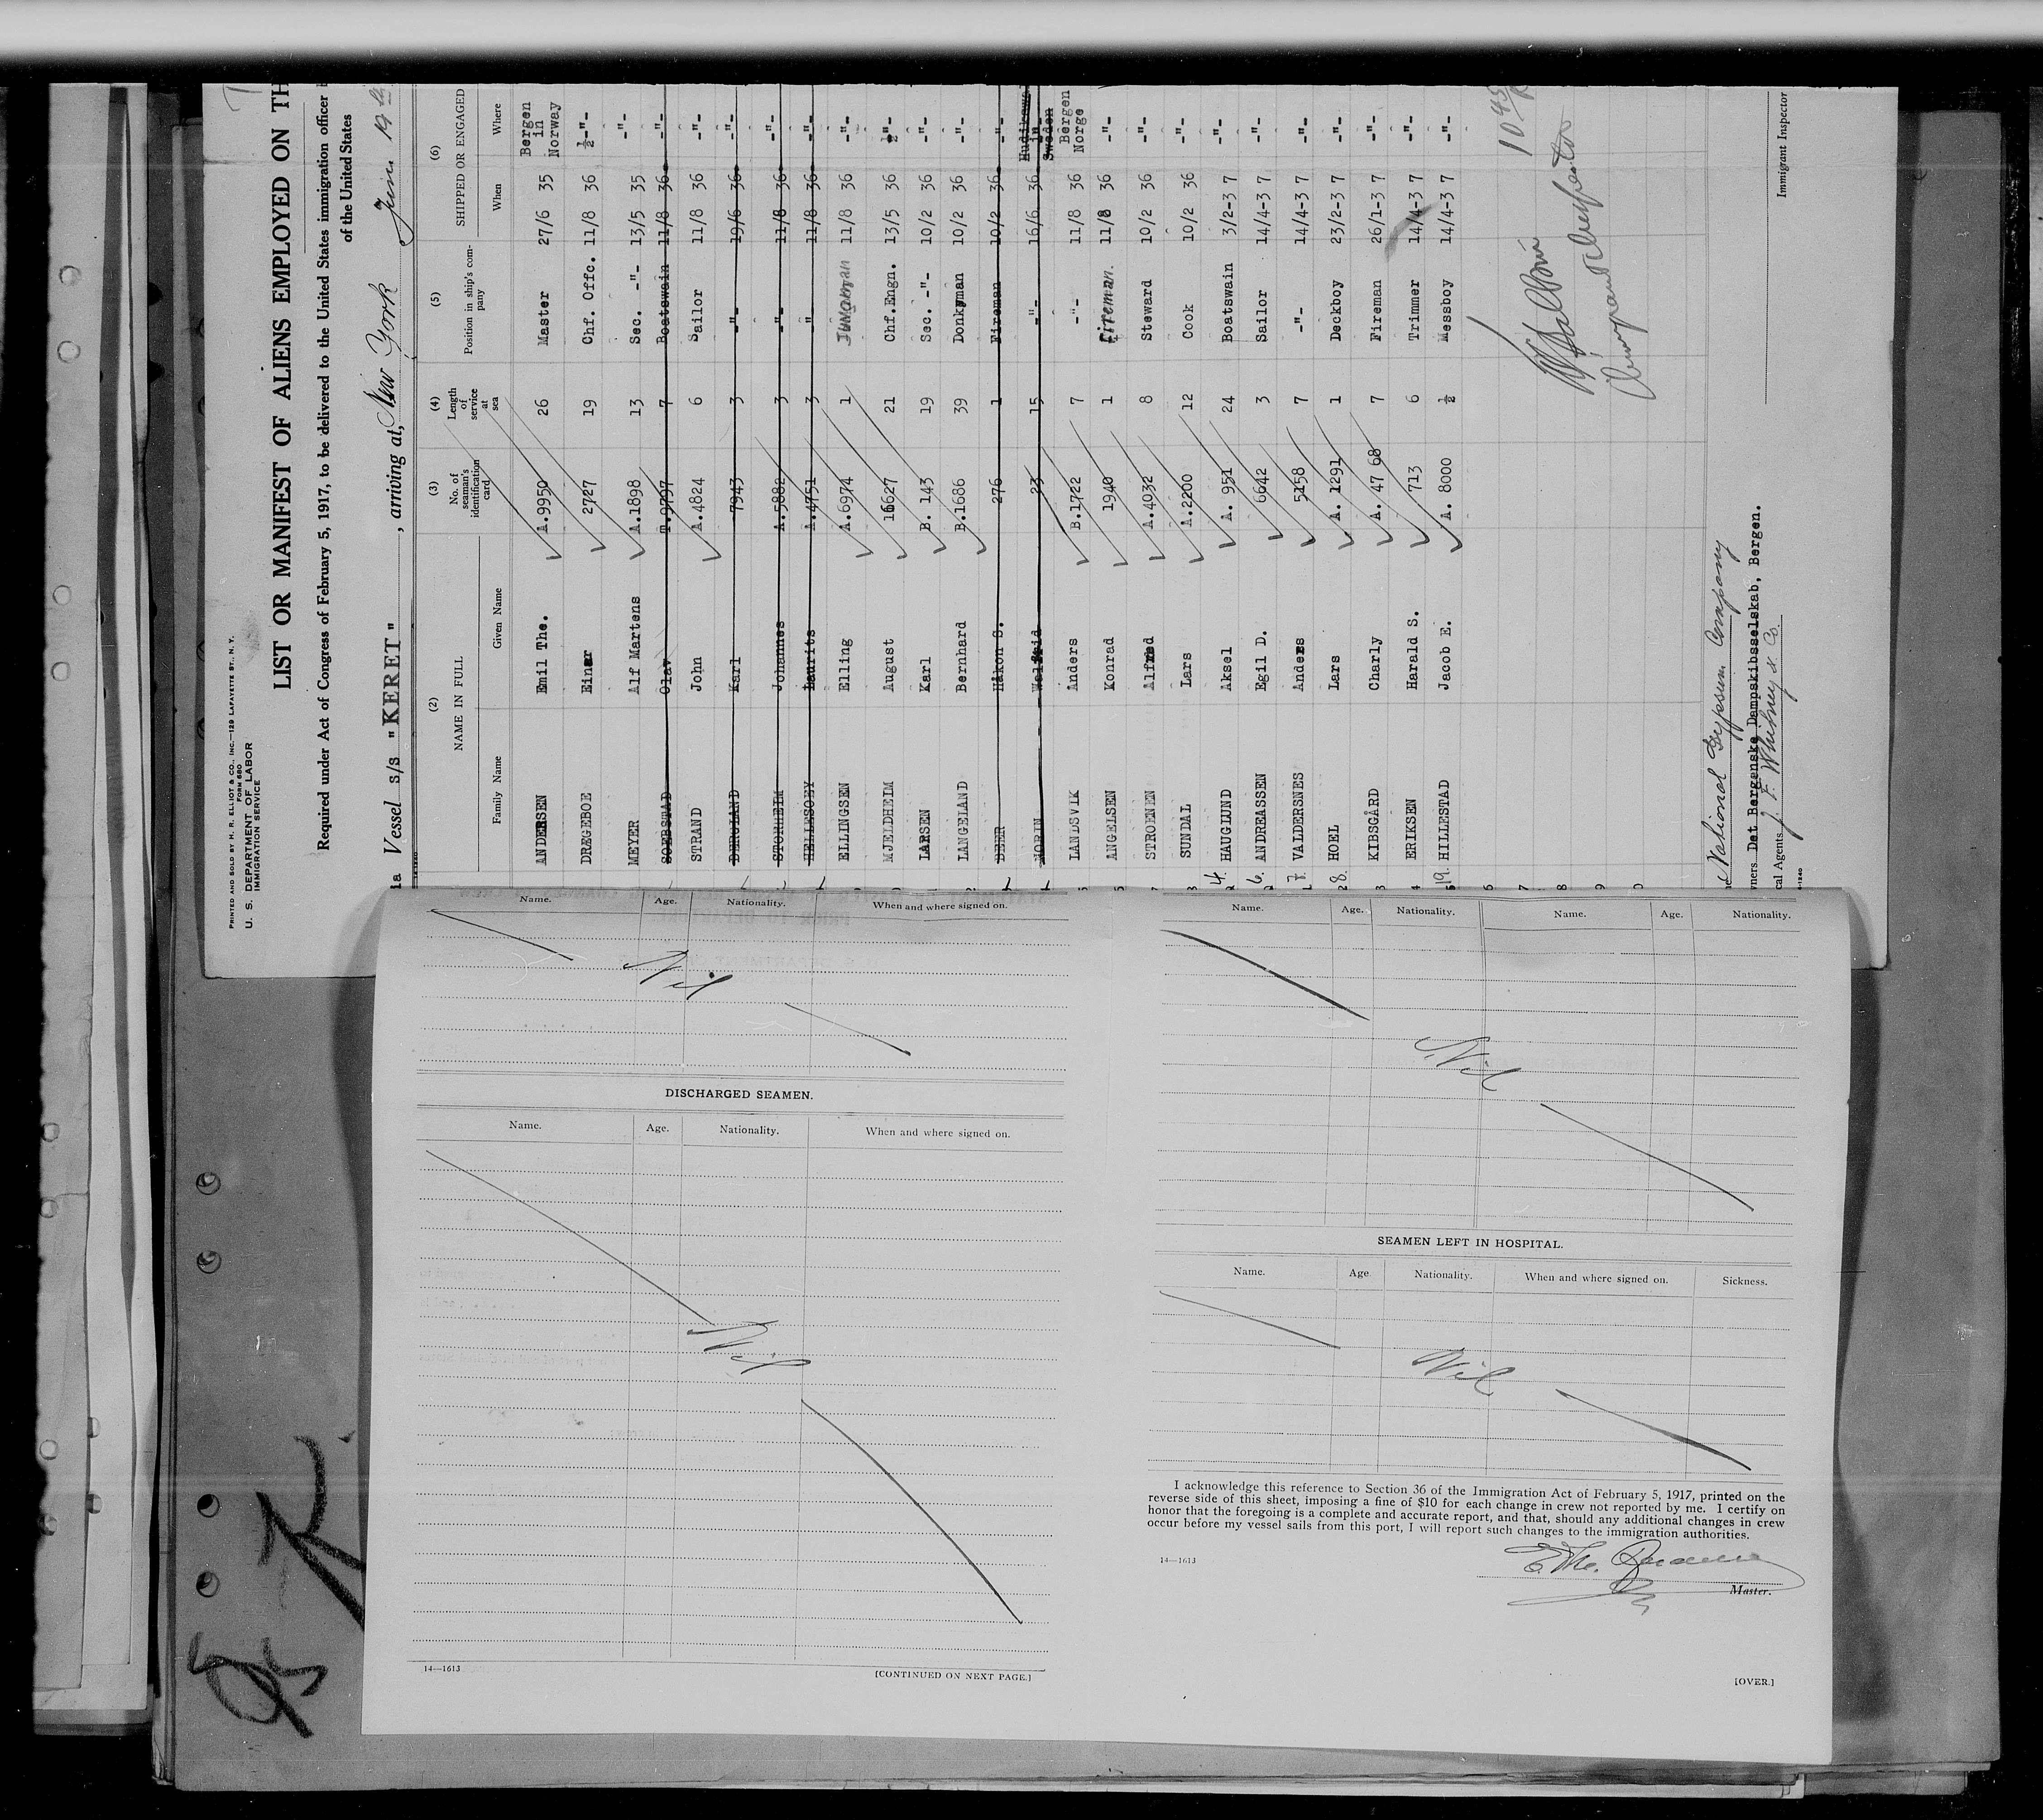 PRINTED AND SOLD BY H. R. ELLIOT & CO., INC.—129 LAFAYETTE ST., N. Y.
FORM 680
U. S. DEPARTMENT OF LABOR
IMMIGRATION SERVICE
LIST OR MANIFEST OF ALIENS EMPLOYED ON TH
Required under Act of Congress of February 5, 1917, to be delivered to the United States immigration officer
of the United States
Vessel s/s "KERET" , arriving at, New York June 19th
(2) (3) (4) (5) (6)
NAME IN FULL No. of seaman's identification card Length of service at sea Position in ship's company SHIPPED OR ENGAGED
Family Name Given Name When Where
ANDERSEN Emil The. A.9950 26 Master 27/6 35 Bergen in Norway
DRÆGEBOE Einar 2727 19 Chf. Offc. 11/8 36 -"-
MEYER Alf Martens A.1898 13 Sec. -"- 13/5 35 -"-
SOEBSTAD Olav T.9797 7 Boatswain 11/8 36 -"-
STRAND John A.4824 6 Sailor 11/8 36 -"-
BERGLAND Karl 7943 3 -"- 19/6 36 -"-
STORHEIM Johannes A.5882 3 -"- 11/8 36 -"-
HELLESOEY Laurits A.4751 3 -"- 11/8 36 -"-
ELLINGSEN Elling A.6974 1 Jungman 11/8 36 -"-
MJELDHEIM August 16627 21 Chf.Engn. 13/5 36 -"-
LARSEN Karl B. 143 19 Sec. -"- 10/2 36 -"-
LANGELAND Bernhard B.1686 39 Donkyman 10/2 36 -"-
BEER Håkon S. 276 1 Fireman 10/2 36 -"-
NORIN 23 15 -"- 16/6 36 in Sweden
LANDSVIK Anders B.1722 7 -"- 11/8 36 Bergen Norge
ANGELSEN Konrad 1940 1 Fireman. 11/8 36 -"-
STROENEN Alfred A.4032 8 Steward 10/2 36 -"-
SUNDAL Lars A.2200 12 Cook 10/2 36 -"-
4. HAUGLUND Aksel A. 951 24 Boatswain 3/2-3 7 -"-
6. ANDREASSEN Egil D. 6642 3 Sailor 14/4-3 7 -"-
7. VALDERSNES Anders 5158 7 -"- 14/4-3 7 -"-
8. HOEL Lars A. 1291 1 Deckboy 23/2-3 7 -"-
KIBSGÅRD Charly A. 47 68 7 Fireman 26/1-3 7 -"-
ERIKSEN Harald S. 713 6 Trimmer 14/4-3 7 -"-
19. HILLESTAD Jacob E. A. 8000 ½ Messboy 14/4-3 7 -"-
6
7
8
9
0
1045
Immigrant Inspector
National Gypsum Company
wners Det Bergenske Dampskibsselskab, Bergen.
cal Agents J. F. Whitney & Co.
Name. Age. Nationality. When and where signed on.
Nil
DISCHARGED SEAMEN.
Name. Age. Nationality. When and where signed on.
Nil
14—1613 [CONTINUED ON NEXT PAGE.]
Name. Age. Nationality. Name. Age. Nationality.
Nil
SEAMEN LEFT IN HOSPITAL.
Name. Age. Nationality. When and where signed on. Sickness.
Nil
I acknowledge this reference to Section 36 of the Immigration Act of February 5, 1917, printed on the
reverse side of this sheet, imposing a fine of $10 for each change in crew not reported by me. I certify on
honor that the foregoing is a complete and accurate report, and that, should any additional changes in crew
occur before my vessel sails from this port, I will report such changes to the immigration authorities.
14—1613
E. The.
Master.
[OVER.]